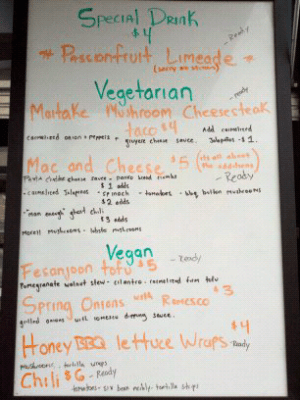 Special Drink
$4
- Ready
* Passionfruit Limeade *
Vegetarian
- ready
Maitake Mushroom Cheesesteak
taco $4
Add caramelized
Jalapeños - $1.
caramelized onion + peppers + gruyere cheese sauce.
Mac and Cheese $5 (it's all about the additions)
- Ready
cheese sauce - panko bread crumbs
$1 adds
- caramelized Jalapenos - spinach - tomatoes - bbq button mushrooms
$2 adds
"man enough" ghost chili
$3 adds
morell mushrooms - lobster mushrooms
Vegan
- Ready
Fesanjoon tofu $5
Pomegranate walnut stew - cilantro - caramelized firm tofu
Spring Onions with Romesco $3
grilled onions with romesco dipping sauce.
$4
Honey BBQ lettuce Wraps - Ready
mushrooms, tortilla wraps
Chili $6 - Ready
tomatoes - six bean medly - tortilla strips